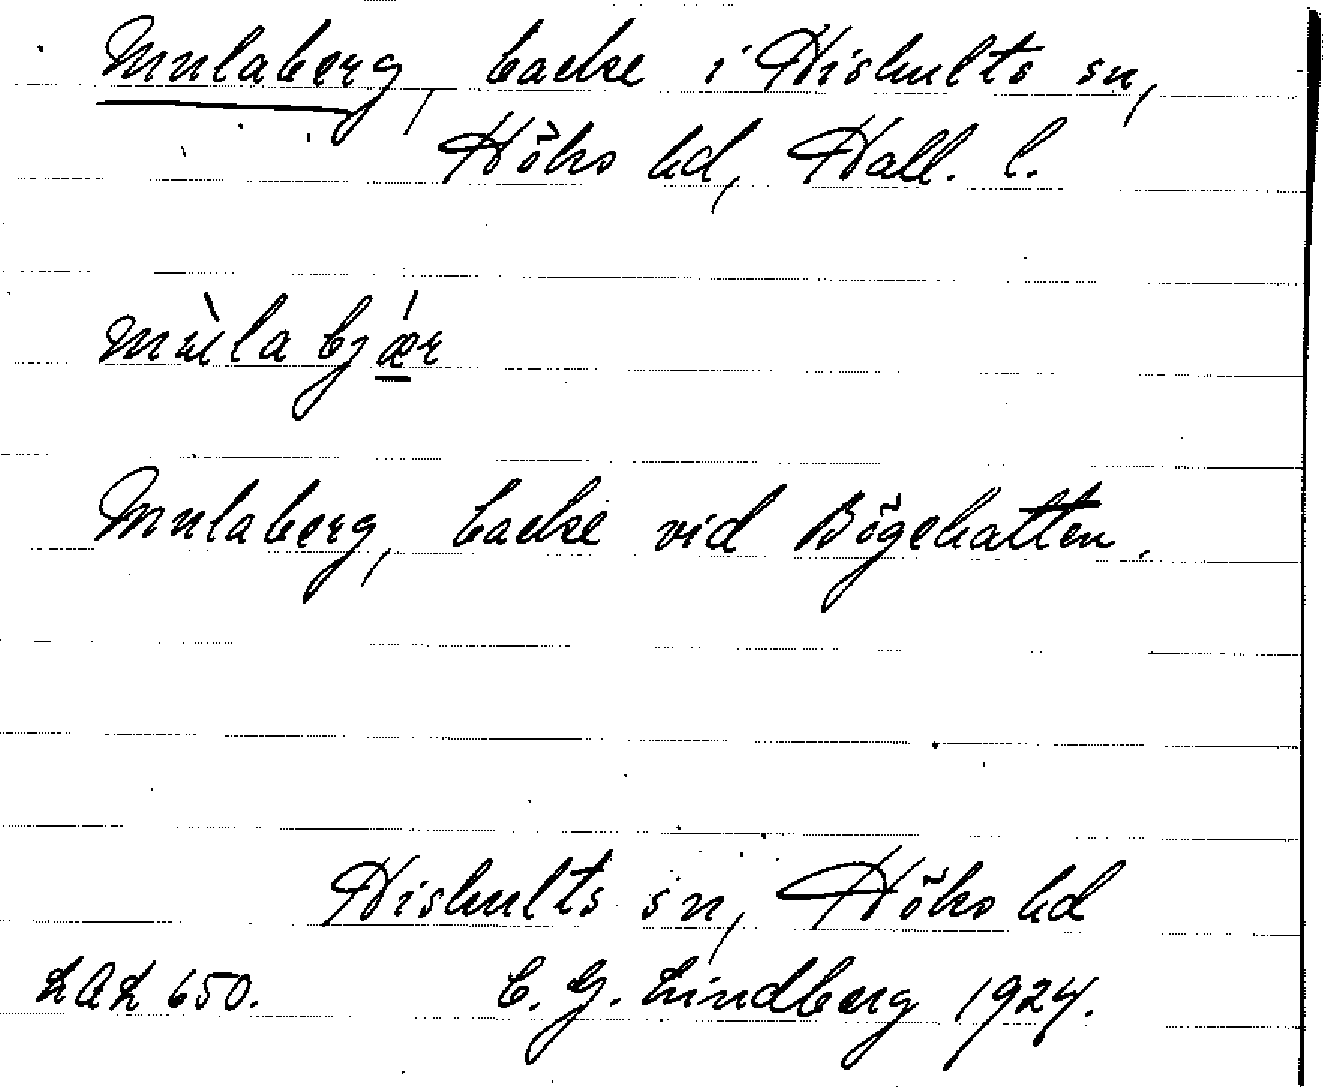 Mulaberg, backe i Hishults sn,
Höks hd, Hall. l.
mùlabjǽr
Mulaberg, backe vid Bögehatten.
Hishults sn, Höks hd
LAL 650. C. G. Lindberg 1924.